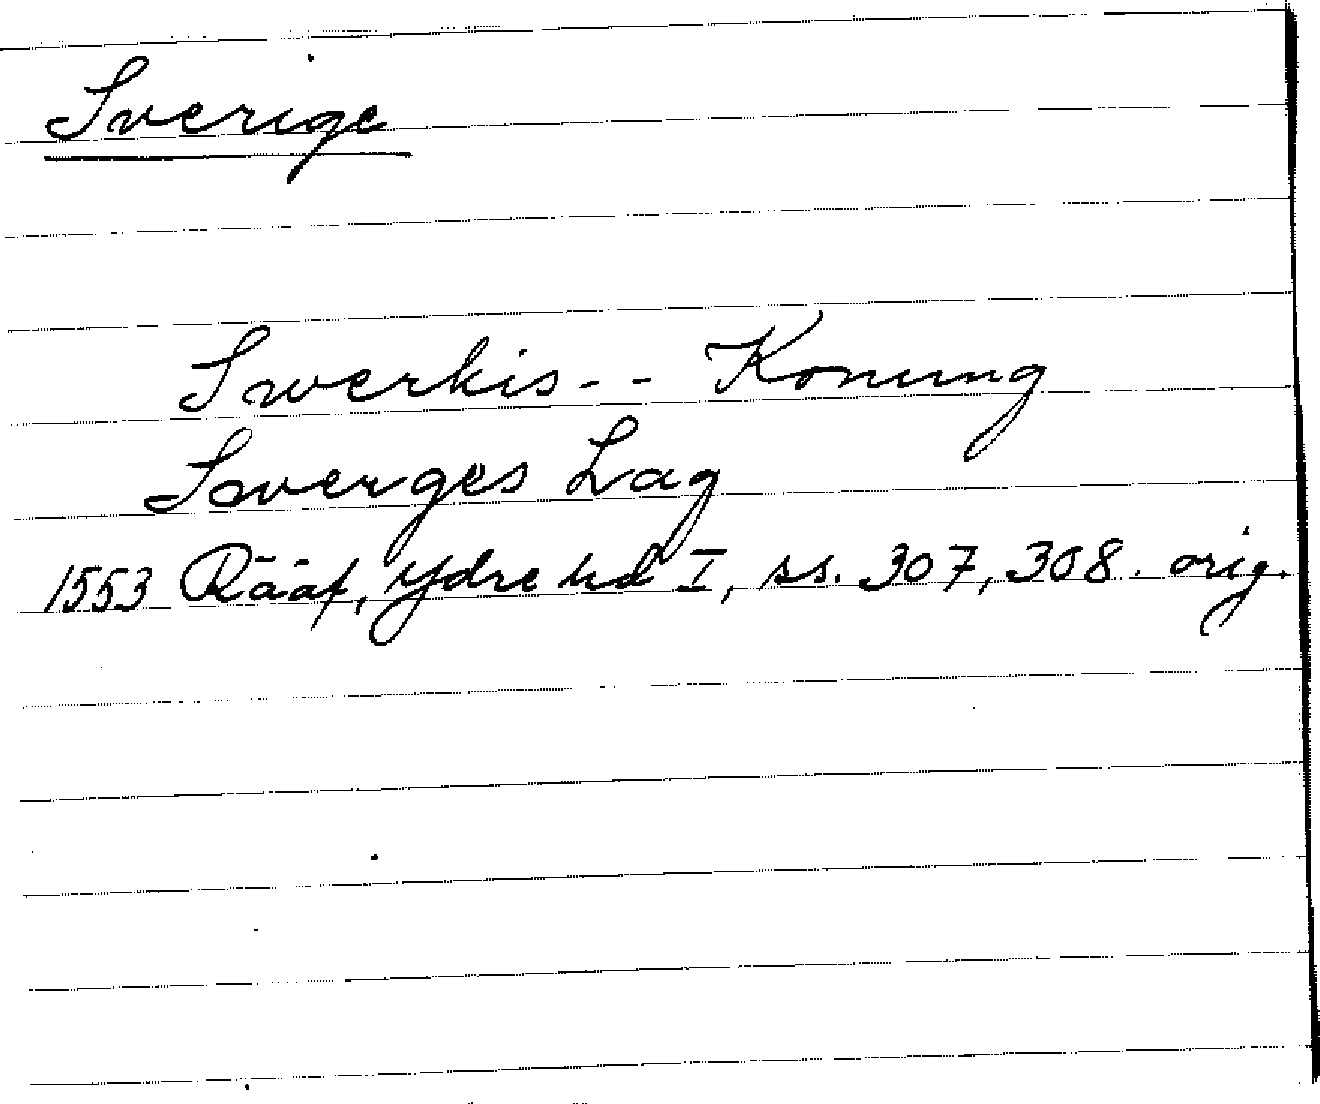 Sverige
Swerkis-- Konung
Swerges Lag
1553 Rääf, Ydre hd I, ss. 307, 308. orig.